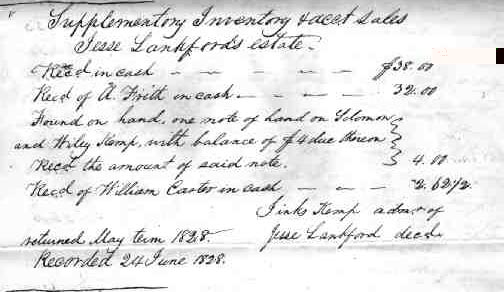 Supplementory Inventory & acct sales
Jesse Lankford's estate.
Recd in cash — — — — — $38.00
Recd of A. Frith in cash — — — 32.00
Found on hand, one note of hand on Solomon
and Wiley Kemp, with balance of $4 due thereon
Recd the amount of said note. 4.00
Recd of William Carter in cash — — — 2.62 1/2
Jinks Kemp admr of
returned May term 1828. Jesse Lankford decd.
Recorded 24 June 1828.